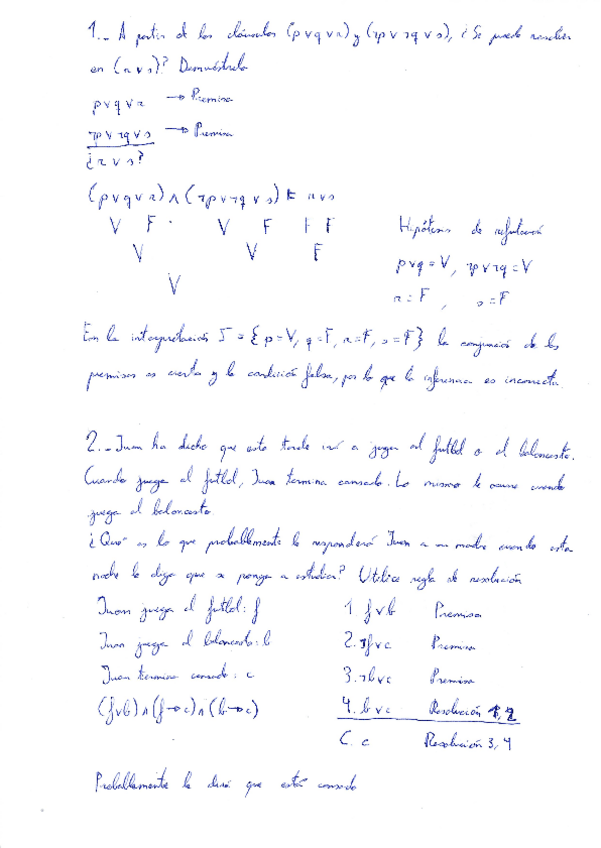 1.- A partir de las cláusulas (p∨q∨r) y (¬p∨¬q∨s), ¿Se puede resolver
en (r∨s)? Demuéstrelo
p∨q∨r → Premisa
¬p∨¬q∨s → Premisa
¿r∨s?
(p∨q∨r)∧(¬p∨¬q∨s) ⊨ r∨s
V F V F F F
V V F
V
Hipótesis de refutación
p∨q=V, ¬p∨¬q=V
r=F , s=F
En la interpretación I = {p=V, q=F, r=F, s=F} la conjunción de las
premisas es cierta y la conclusión falsa, por lo que la inferencia es incorrecta.
2.- Juan ha dicho que esta tarde irá a jugar al futbol o al baloncesto.
Cuando juega al futbol, Juan termina cansado. Lo mismo le ocurre cuando
juega al baloncesto.
¿Qué es lo que probablemente le responderá Juan a su madre cuando esta
noche le diga que se ponga a estudiar? Utilice regla de resolución
Juan juega al futbol: f
Juan juega al baloncesto: b
Juan termina cansado: c
(f∨b)∧(f→c)∧(b→c)
1 f∨b Premisa
2. ¬f∨c Premisa
3. ¬b∨c Premisa
4. b∨c Resolución 1, 2
C. c Resolución 3, 4
Probablemente le dirá que está cansado